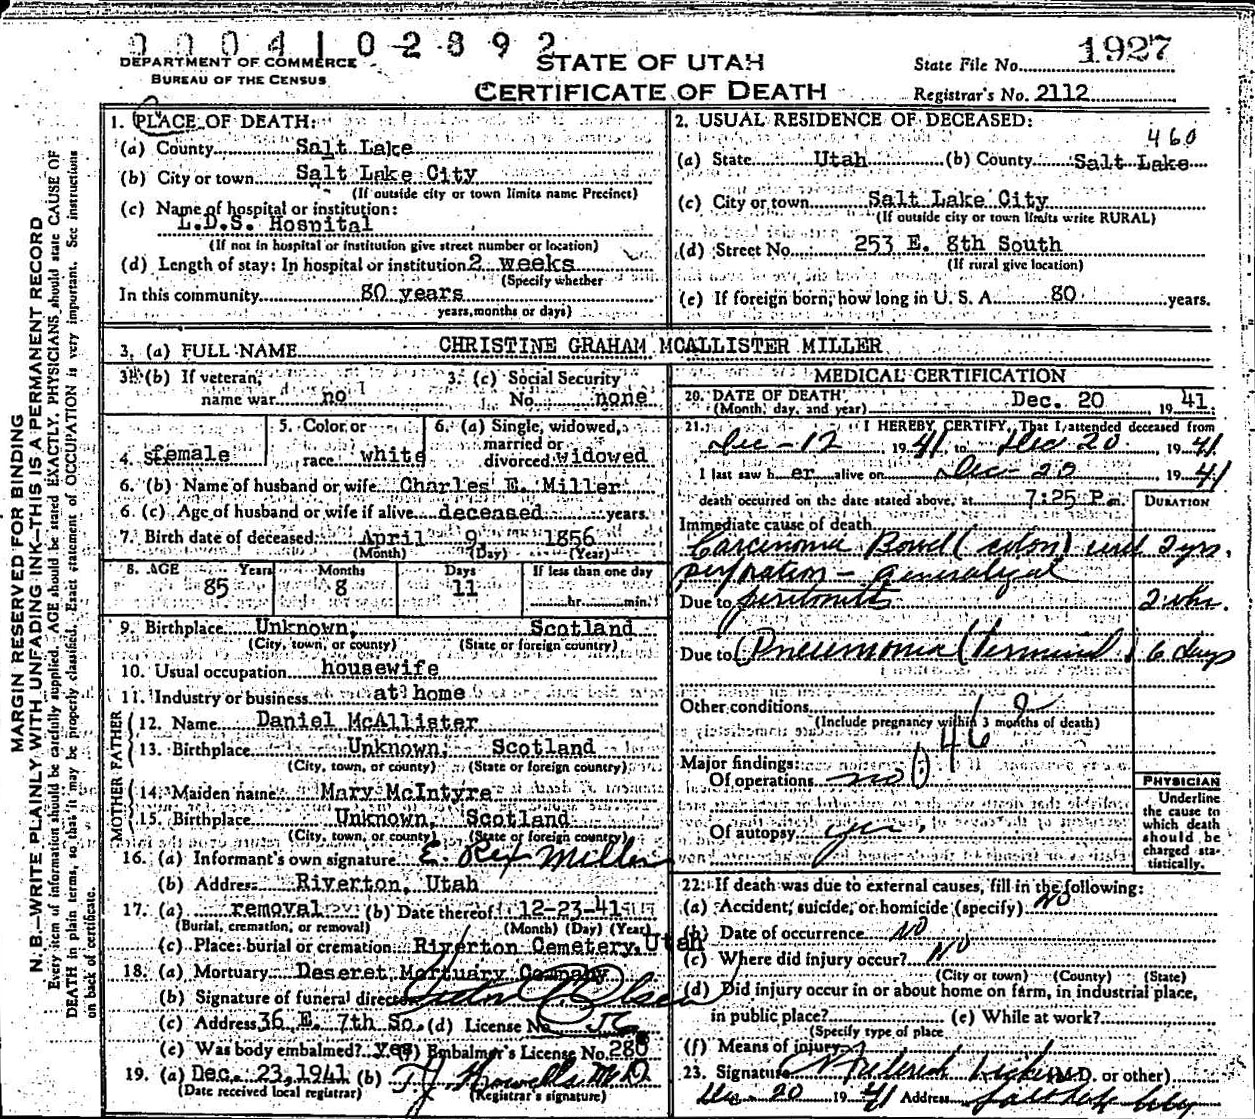 0004102892
DEPARTMENT OF COMMERCE
BUREAU OF THE CENSUS
STATE OF UTAH
CERTIFICATE OF DEATH
State File No. 1927
Registrar's No. 2112
MARGIN RESERVED FOR BINDING
N. B.—WRITE PLAINLY WITH UNFADING INK—THIS IS A PERMANENT RECORD
Every item of information should be carefully supplied. AGE should be stated EXACTLY. PHYSICIANS should state CAUSE OF
DEATH in plain terms, so that it may be properly classified. Exact statement of OCCUPATION is very important. See instructions
on back of certificate.
1. PLACE OF DEATH:
(a) County Salt Lake
(b) City or town Salt Lake City
(If outside city or town limits name Precinct)
(c) Name of hospital or institution:
L.D.S. Hospital
(If not in hospital or institution give street number or location)
(d) Length of stay: In hospital or institution 2 weeks
(Specify whether
In this community 80 years
years, months or days)
2. USUAL RESIDENCE OF DECEASED:
460
(a) State Utah (b) County Salt Lake
(c) City or town Salt Lake City
(If outside city or town limits write RURAL)
(d) Street No. 253 E. 8th South
(If rural give location)
(e) If foreign born, how long in U. S. A. 80 years.
3. (a) FULL NAME CHRISTINE GRAHAM MCALLISTER MILLER
3. (b) If veteran, name war no
3. (c) Social Security No. none
4. Sex female
5. Color or race white
6. (a) Single, widowed, married or divorced widowed
6. (b) Name of husband or wife Charles E. Miller
6. (c) Age of husband or wife if alive deceased years.
7. Birth date of deceased April 9, 1856
(Month) (Day) (Year)
8. AGE Years Months Days If less than one day
85 8 11 hr. min.
9. Birthplace Unknown, Scotland
(City, town, or county) (State or foreign country)
10. Usual occupation housewife
11. Industry or business at home
FATHER
12. Name Daniel McAllister
13. Birthplace Unknown, Scotland
(City, town, or county) (State or foreign country)
MOTHER
14. Maiden name Mary McIntyre
15. Birthplace Unknown, Scotland
(City, town, or county) (State or foreign country)
16. (a) Informant's own signature E. Rex Miller
(b) Address Riverton, Utah
17. (a) removal (b) Date thereof 12-23-41
(Burial, cremation, or removal) (Month) (Day) (Year)
(c) Place: burial or cremation Riverton Cemetery, Utah
18. (a) Mortuary Deseret Mortuary Company
(b) Signature of funeral director
(c) Address 36 E. 7th So. (d) License No. 56
(e) Was body embalmed? yes (f) Embalmer's License No. 280
19. (a) Dec. 23, 1941 (b) Howells M.D.
(Date received local registrar) (Registrar's signature)
MEDICAL CERTIFICATION
20. DATE OF DEATH Dec. 20 1941
(Month, day, and year)
21. I HEREBY CERTIFY, That I attended deceased from
Dec - 12 1941, to Dec 20 1941
I last saw her alive on Dec - 20 1941
death occurred on the date stated above, at 7:25 P.m. DURATION
Immediate cause of death
Carcinoma Bowel (colon) and 2 yrs.
perforation - generalized
Due to peritonitis 2 wks.
Due to Pneumonia (terminal) 6 days
Other conditions
(Include pregnancy within 3 months of death)
46
Major findings:
Of operations no
Of autopsy yes.
PHYSICIAN
Underline
the cause to
which death
should be
charged sta-
tistically.
22. If death was due to external causes, fill in the following:
(a) Accident, suicide, or homicide (specify) NO
(b) Date of occurrence NO
(c) Where did injury occur? NO
(City or town) (County) (State)
(d) Did injury occur in or about home on farm, in industrial place,
in public place? (e) While at work?
(Specify type of place
(f) Means of injury
23. Signature (M.D. or other)
Dec. 20 1941 Address